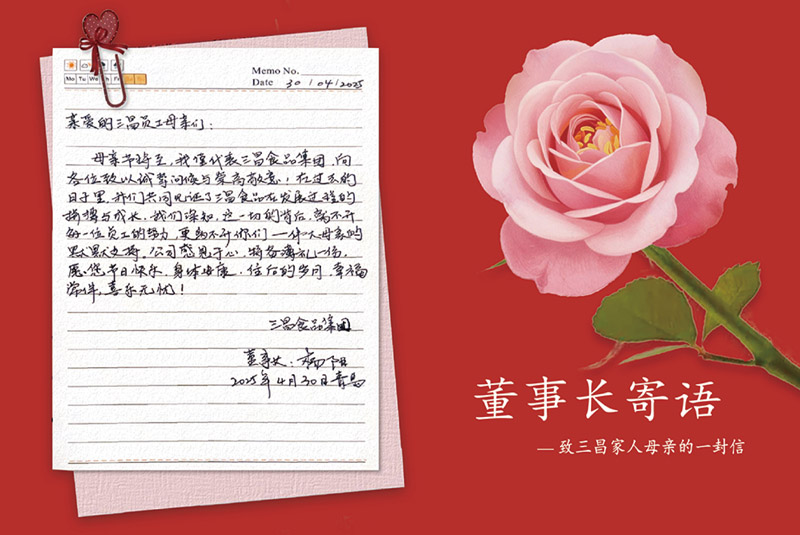 Memo No.
Mo Tu We Th Fr
Date 30/04/2025
亲爱的三昌员工母亲们：
母亲节将至，我谨代表三昌食品集团，向
各位致以诚挚问候与崇高敬意！在过去的
日子里，我们共同见证了三昌食品在发展过程的
拼搏与成长。我们深知，这一切的背后，离不开
每一位员工的努力，更离不开你们——伟大母亲的
默默支持。公司感恩于心，特备薄礼一份，
愿您节日快乐、身体安康，往后的岁月，幸福
常伴，喜乐无忧！
三昌食品集团
董事长：
2025年4月30日青岛
董事长寄语
— 致三昌家人母亲的一封信